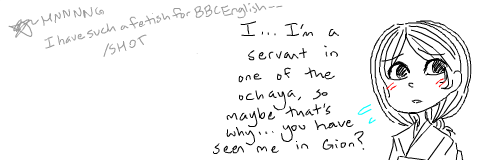 MNNNNG
I have such a fetish for BBC English--
/SHOT
I... I'm a
servant in
one of the
ochaya, so
maybe that's
why... you have
seen me in Gion?